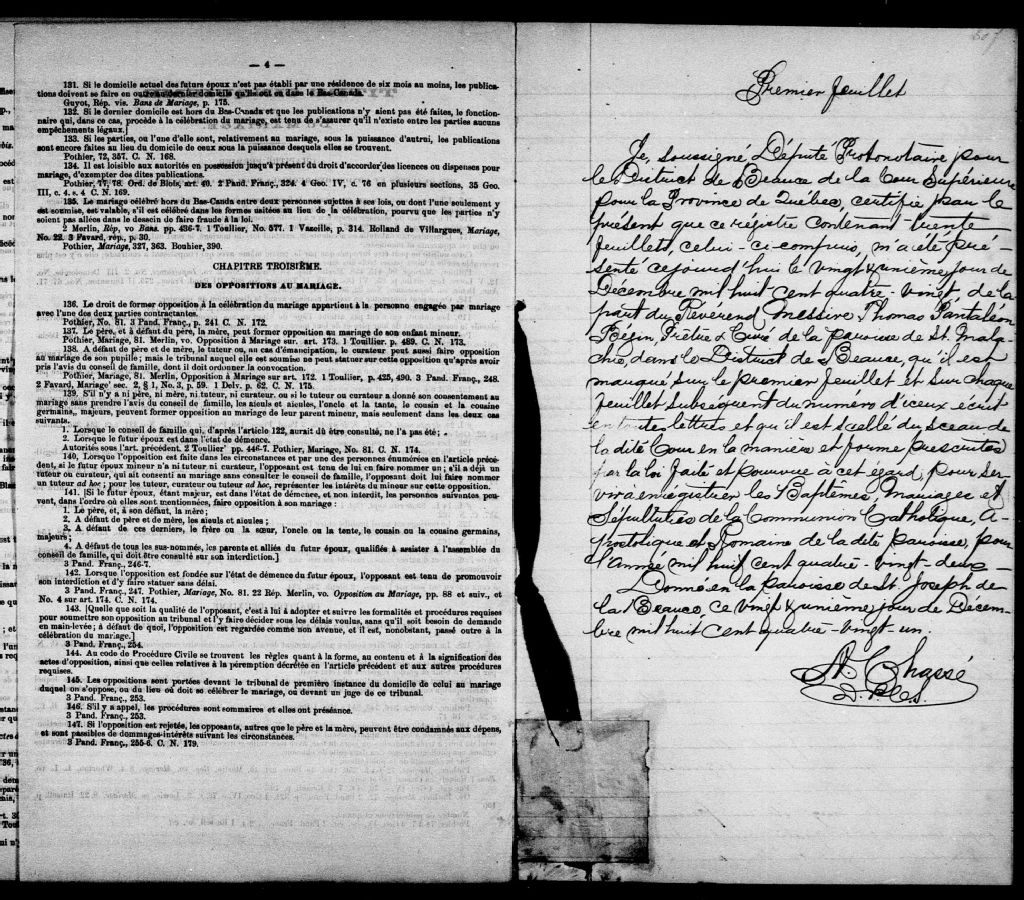 — 4 —
131. Si le domicile actuel des futurs époux n'est pas établi par une résidence de six mois au moins, les publica-
tions doivent se faire en outre au dernier domicile qu'ils ont eu dans le Bas-Canada.
Guyot, Rép. vis. Bans de Mariage, p. 175.
132. Si le dernier domicile est hors du Bas-Canada et que les publications n'y aient pas été faites, le fonction-
naire qui, dans ce cas, procède à la célébration du mariage, est tenu de s'assurer qu'il n'existe entre les parties aucuns
empêchements légaux.]
133. Si les parties, ou l'une d'elle sont, relativement au mariage, sous la puissance d'autrui, les publications
sont encore faites au lieu du domicile de ceux sous la puissance desquels elles se trouvent.
Pothier, 72, 357. C. N. 168.
134. Il est loisible aux autorités en possession jusqu'à présent du droit d'accorder des licences ou dispenses pour
mariage, d'exempter des dites publications.
Pothier, 77, 78. Ord. de Blois, art. 40. 2 Pand. Franç., 324. 4 Geo. IV, c. 76 en plusieurs sections, 35 Geo.
III, c. 4. s. 4 C. N. 169.
135. Le mariage célébré hors du Bas-Canada entre deux personnes sujettes à ses lois, ou dont l'une seulement y
est soumise, est valable, s'il est célébré dans les formes usitées au lieu de la célébration, pourvu que les parties n'y
soient pas allées dans le dessein de faire fraude à la loi.
2 Merlin, Rép, vo Bans. pp. 436-7. 1 Toullier, No. 577. 1 Vazeille, p. 314. Rolland de Villargues, Mariage,
No. 22. 3 Favard, rép., p. 30.
Pothier, Mariage, 327, 363. Bouhier, 390.
CHAPITRE TROISIÈME.
DES OPPOSITIONS AU MARIAGE.
136. Le droit de former opposition à la célébration du mariage appartient à la personne engagée par mariage
avec l'une des deux parties contractantes.
Pothier, No. 81. 3 Pand. Franç., p. 241 C. N. 172.
137. Le père, et à défaut du père, la mère, peut former opposition au mariage de son enfant mineur.
Pothier, Mariage, 81. Merlin, vo. Opposition à Mariage sur. art. 173. 1 Touillier. p. 489. C. N. 173.
138. A défaut de père et de mère, le tuteur ou, au cas d'émancipation, le curateur peut aussi faire opposition
au mariage de son pupille; mais le tribunal auquel elle est soumise ne peut statuer sur cette opposition qu'après avoir
pris l'avis du conseil de famille, dont il doit ordonner la convocation.
Pothier, Mariage, 81. Merlin, Opposition à Mariage sur art. 172. 1 Toullier, p. 425, 490. 3 Pand. Franç., 248.
2 Favard, Mariage' sec. 2, § 1, No. 3, p. 59. 1 Delv. p. 62. C. N. 175.
139. S'il n'y a ni père, ni mère, ni tuteur, ni curateur. ou si le tuteur ou curateur a donné son consentement au
mariage sans prendre l'avis du conseil de famille, les aieuls et aieules, l'oncle et la tante, le cousin et la cousine
germains, majeurs, peuvent former opposition au mariage de leur parent mineur, mais seulement dans les deux cas
suivants.
1. Lorsque le conseil de famille qui, d'après l'article 122, aurait dû être consulté, ne l'a pas été;
2. Lorsque le futur époux est dans l'état de démence.
Autorités sous l'art. précédent. 2 Toullier' pp. 446-7. Pothier, Mariage, No. 81. C. N. 174.
140, Lorsque l'opposition est faite dans les circonstances et par une des personnes énumérées en l'article précé-
dent, si le futur époux mineur n'a ni tuteur ni curateur, l'opposant est tenu de lui en faire nommer un; s'il a déjà un
tuteur ou curateur, qui ait consenti au mariage sans consulter le conseil de famille, l'opposant doit lui faire nommer
un tuteur ad hoc; pour les tuteur, curateur ou tuteur ad hoc, représenter les intérêts du mineur sur cette opposition.
141. [Si le futur époux, étant majeur, est dans l'état de démence, et non interdit, les personnes suivantes peu-
vent, dans l'ordre où elles sont mentionnées, faire opposition à son mariage:
1. Le père, et, à son défaut, la mère;
2. A défaut de père et de mère, les aieuls et aieules;
3. A défaut de ces derniers, le frère ou la sœur, l'oncle ou la tente, le cousin ou la cousine germains,
majeurs;
4. A défaut de tous les sus-nommés, les parents et alliés du futur époux, qualifiés à assister à l'assemblée du
conseil de famille, qui doit être consulté sur son interdiction.]
3 Pand. Franç., 246-7.
142. Lorsque l'opposition est fondée sur l'état de démence du futur époux, l'opposant est tenu de promouvoir
son interdiction et d'y faire statuer sans délai.
3 Pand. Franç., 247. Pothier, Mariage, No. 81. 22 Rép. Merlin, vo. Opposition au Mariage, pp. 88 et suiv., et
No. 4 sur art. 174. C. N. 174.
143. [Quelle que soit la qualité de l'opposant, c'est à lui à adopter et suivre les formalités et procédures requises
pour soumettre son opposition au tribunal et l'y faire décider sous les délais voulus, sans qu'il soit besoin de demande
en main-levée; à défaut de quoi, l'opposition est regardée comme non avenue, et il est, nonobstant, passé outre à la
célébration du mariage.]
3 Pand. Franç., 254.
144. Au code de Procédure Civile se trouvent les règles quant à la forme, au contenu et à la signification des
actes d'opposition, ainsi que celles relatives à la péremption décrétée en l'article précédent et aux autres procédures
requises.
145. Les oppositions sont portées devant le tribunal de première instance du domicile de celui au mariage
duquel on s'oppose, ou du lieu où doit se célébrer le mariage, ou devant un juge de ce tribunal.
3 Pand. Franç., 253.
146. S'il y a appel, les procédures sont sommaires et elles ont préséance.
3 Pand. Franç., 253.
147. Si l'opposition est rejetée, les opposants, autres que le père et la mère, peuvent être condamnés aux dépens,
et sont passibles de dommages-intérêts suivant les circonstances.
3 Pand. Franç., 255-6. C. N. 179.
Premier feuillet
Je, soussigné Député Protonotaire pour
le District de Beauce de la Cour Supérieure
pour la Province de Québec, certifie par le
présent que ce régistre contenant trente
feuillets, celui-ci compris, m'a été pré-
senté ce jourd'hui le vingt & unième jour de
Décembre mil huit cent quatre-vingt de la
part du Révérend Messire Thomas Pantaléon
Bégin, Prêtre & Curé de la paroisse de St. Mala-
chie, dans le District de Beauce, qu'il est
marqué sur le premier feuillet et sur chaque
feuillet subséquent du numéro d'iceux écrit
en toutes lettres et qu'il est scellé du sceau de
la dite Cour en la manière et forme prescrites
par la loi faite et pourvue à cet égard, pour ser-
vir a enrégistrer les Baptêmes, Mariages et
Sépultures de la Communion Catholique, A-
postolique et Romaine de la dite paroisse, pour
l'année mil huit cent quatre-vingt-deux
Donné en la paroisse de St. Joseph de
la Beauce ce vingt & unième jour de Décem-
bre mil huit cent quatre-vingt-un.
Chassé